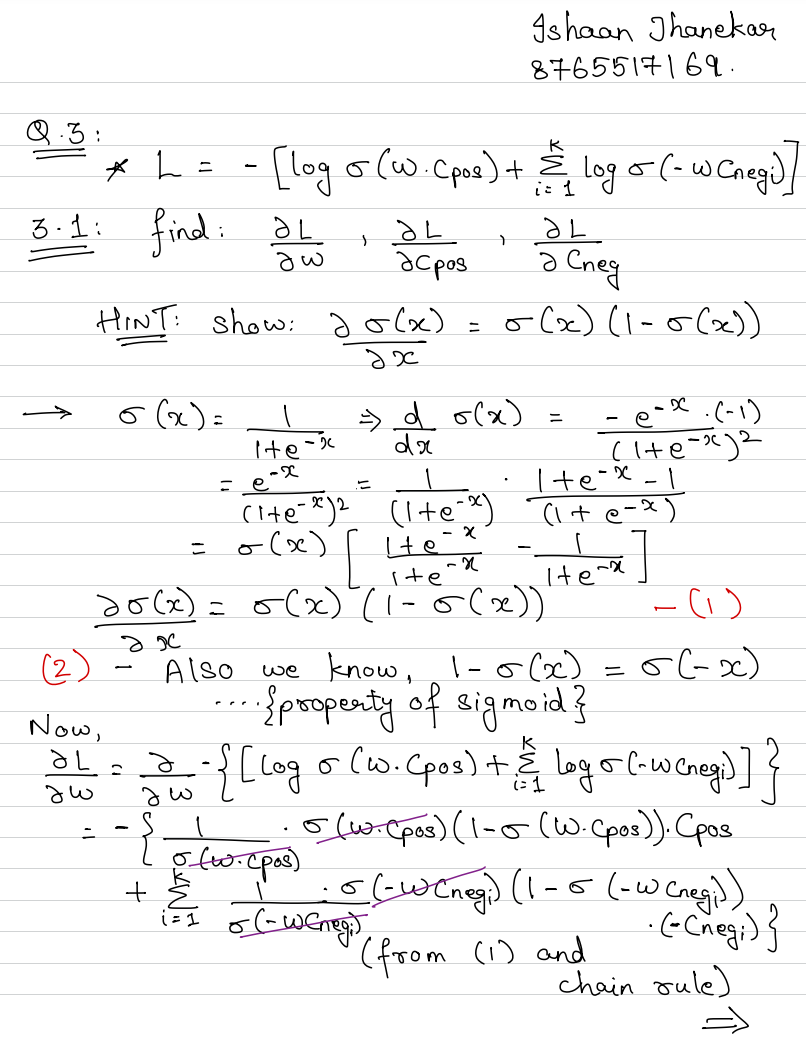 Ishaan Jhanekar
8765517169.
Q.3:
* L = - [log σ(w.Cpos) + Σ_{i=1}^{K} log σ(-w Cnegi)]
3.1: find: ∂L/∂w , ∂L/∂Cpos , ∂L/∂Cneg
HINT: show: ∂σ(x)/∂x = σ(x) (1-σ(x))
→ σ(x) = 1/(1+e^{-x}) ⇒ d/dx σ(x) = -e^{-x}.(-1)/(1+e^{-x})^2
= e^{-x}/(1+e^{-x})^2 = 1/(1+e^{-x}) . (1+e^{-x}-1)/(1+e^{-x})
= σ(x) [ (1+e^{-x})/(1+e^{-x}) - 1/(1+e^{-x}) ]
∂σ(x)/∂x = σ(x) (1-σ(x)) -(1)
(2) - Also we know, 1-σ(x) = σ(-x)
....{property of sigmoid}
Now,
∂L/∂w = ∂/∂w -{[log σ(w.Cpos) + Σ_{i=1}^{K} log σ(-w Cnegi)]}
= -{ 1/σ(w.Cpos) . σ(w.Cpos)(1-σ(w.Cpos)).Cpos
+ Σ_{i=1}^{K} 1/σ(-w Cnegi) . σ(-w Cnegi)(1-σ(-w Cnegi))
.(-Cnegi)}
(from (1) and
chain rule)
⇒